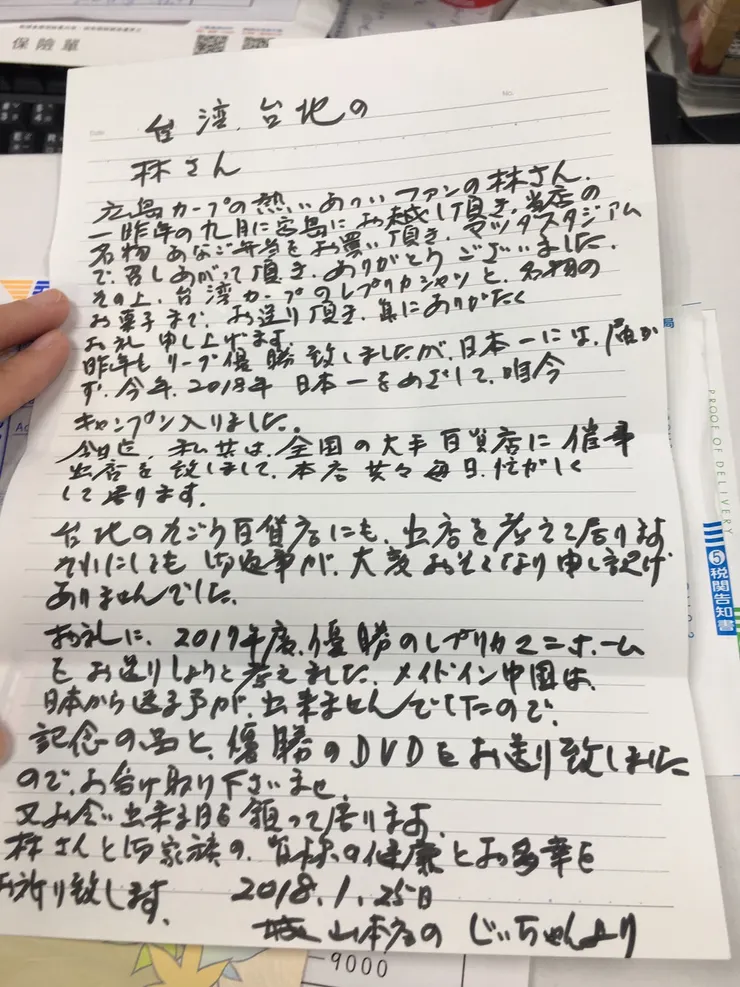 保險單
Date
No.
台湾、台北の
林さん
広島カープの熱いあついファンの林さん、
一昨年の九月に宮島にお越し頂き、当店の
名物あなご弁当をお買い頂き、マツダスタジアム
で、召しあがって頂き、ありがとうございました。
その上、台湾カープのレプリカシャツと、名物の
お菓子まで、お送り頂き、真にありがたく
お礼申し上げます。
昨年もリーグ優勝致しましたが、日本一には、届か
ず、今年、2018年 日本一をめざして、昨今
キャンプン入りました。
今日迄、私共は、全国の大手百貨店に催事
出店を致しまして、本店共々毎日、忙がしく
して居ります。
台北のそごう百貨店にも、出店を考えて居ります
それにしても御返事が、大変おそくなり申し訳け
ありませんでした。
お礼に、2017年度、優勝のレプリカユニホーム
をお送りしようと考えました、メイドイン中国は、
日本から送る予が、出来ませんでしたので、
記念の品と、優勝のDVDをお送り致しました
ので、お受け取り下さいませ、
又お会い出来る日を願って居ります。
林さんと御家族の、皆様の健康とお多幸を
お祈り致します。 2018.1.25日
山本店の じいちゃんより
9000
PROOF OF DELIVERY
⑤税関告知書
局